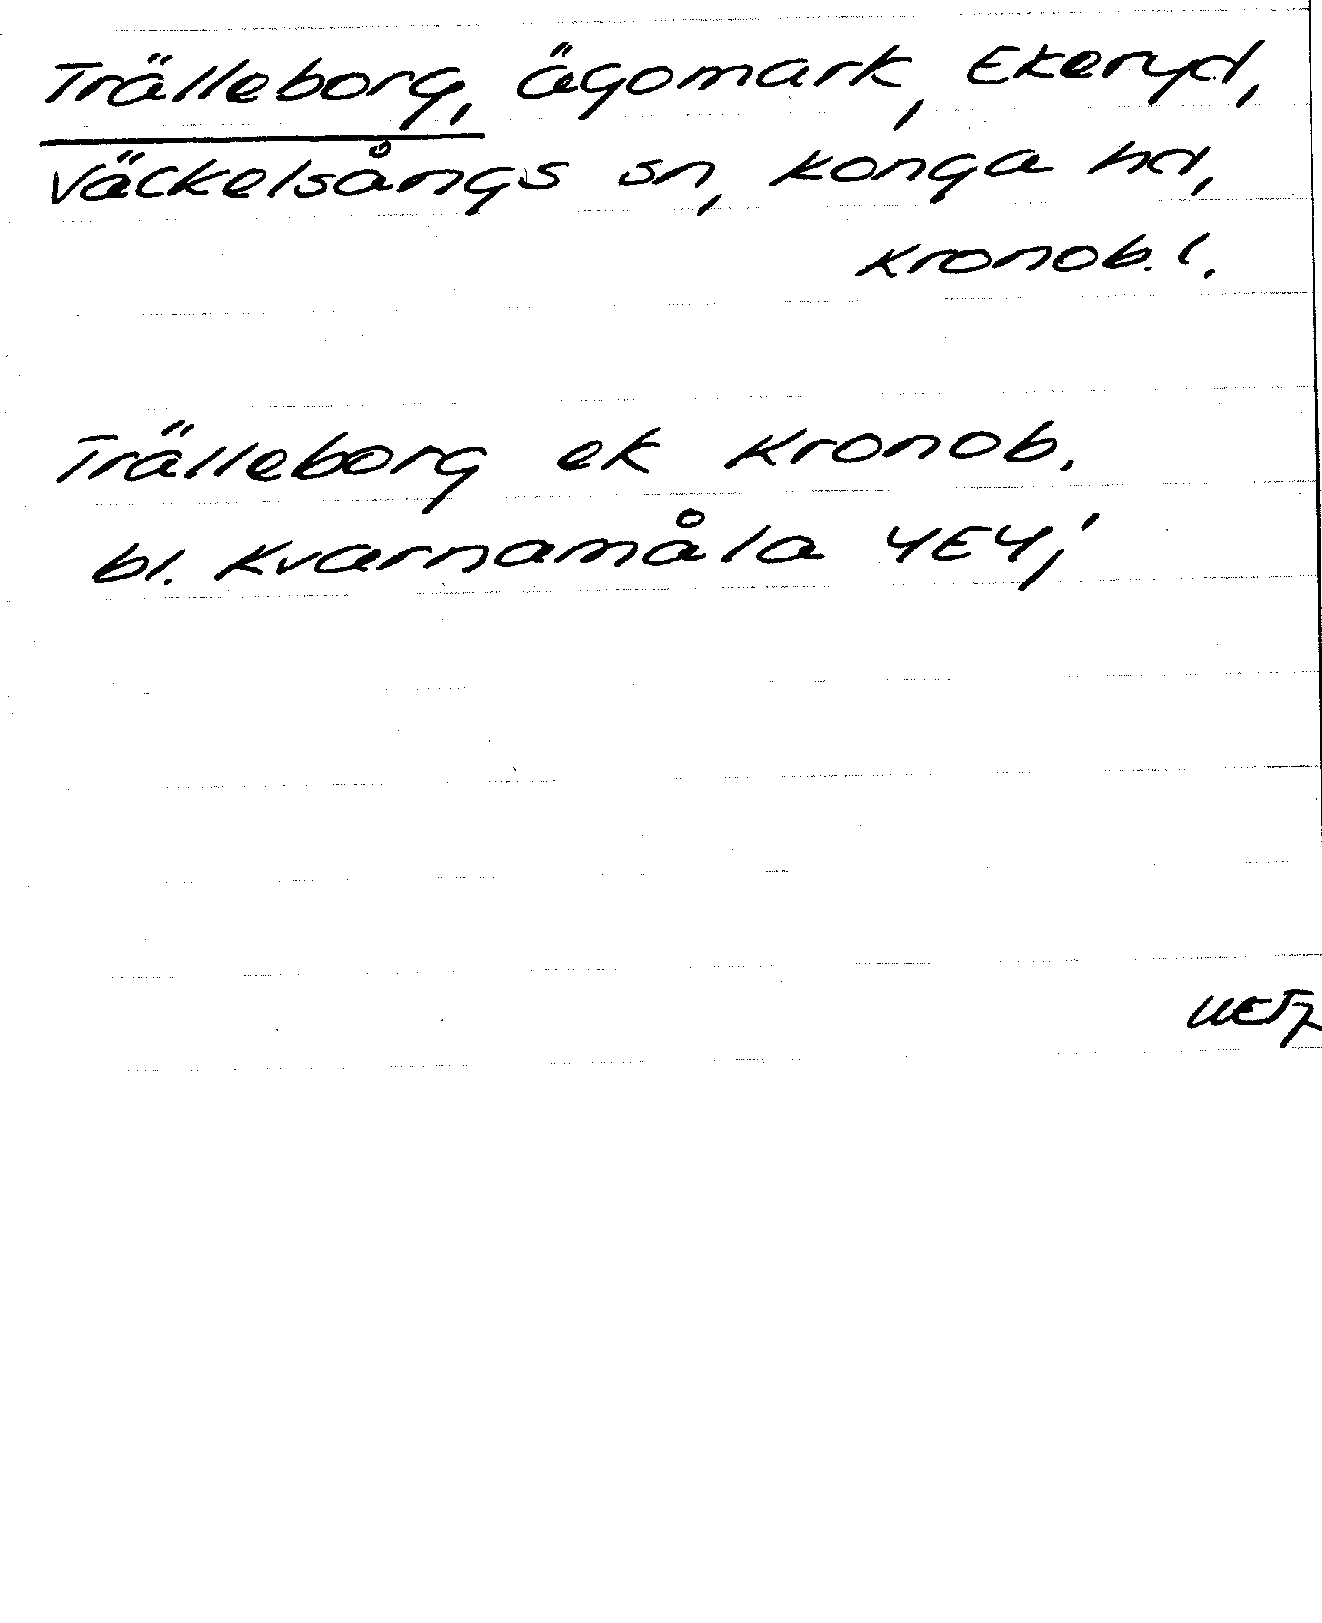 Trälleborg, ägomark, Ekeryd,
Väckelsångs sn, Konga hd,
Kronob. l.
Trälleborg ek Kronob.
bl. Kvarnamåla 4E4,